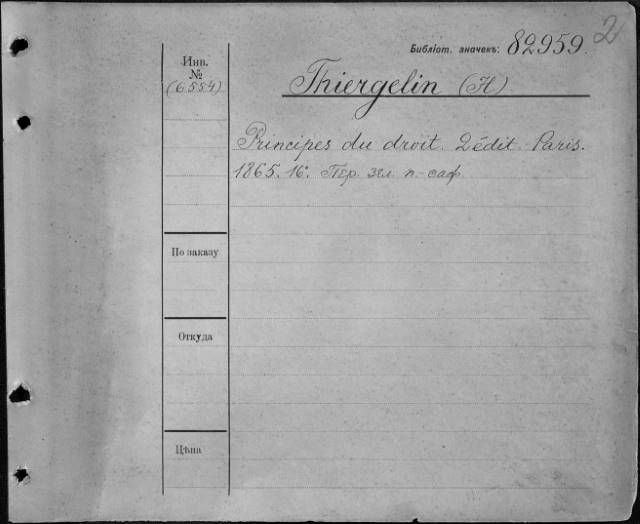 2
Библіот. значекъ: 82959.
Инв.
№
(6554)
Thiergelin (H)
Principes du droit. 2 édit. Paris.
1865. 16º. Пер. зл. п.-саф.
По заказу
Откуда
Цѣна